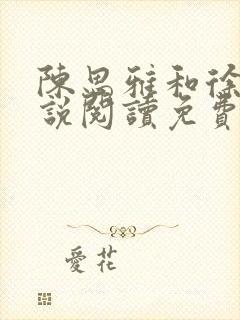 陳思雅和徐
說閱讀免費
愛花